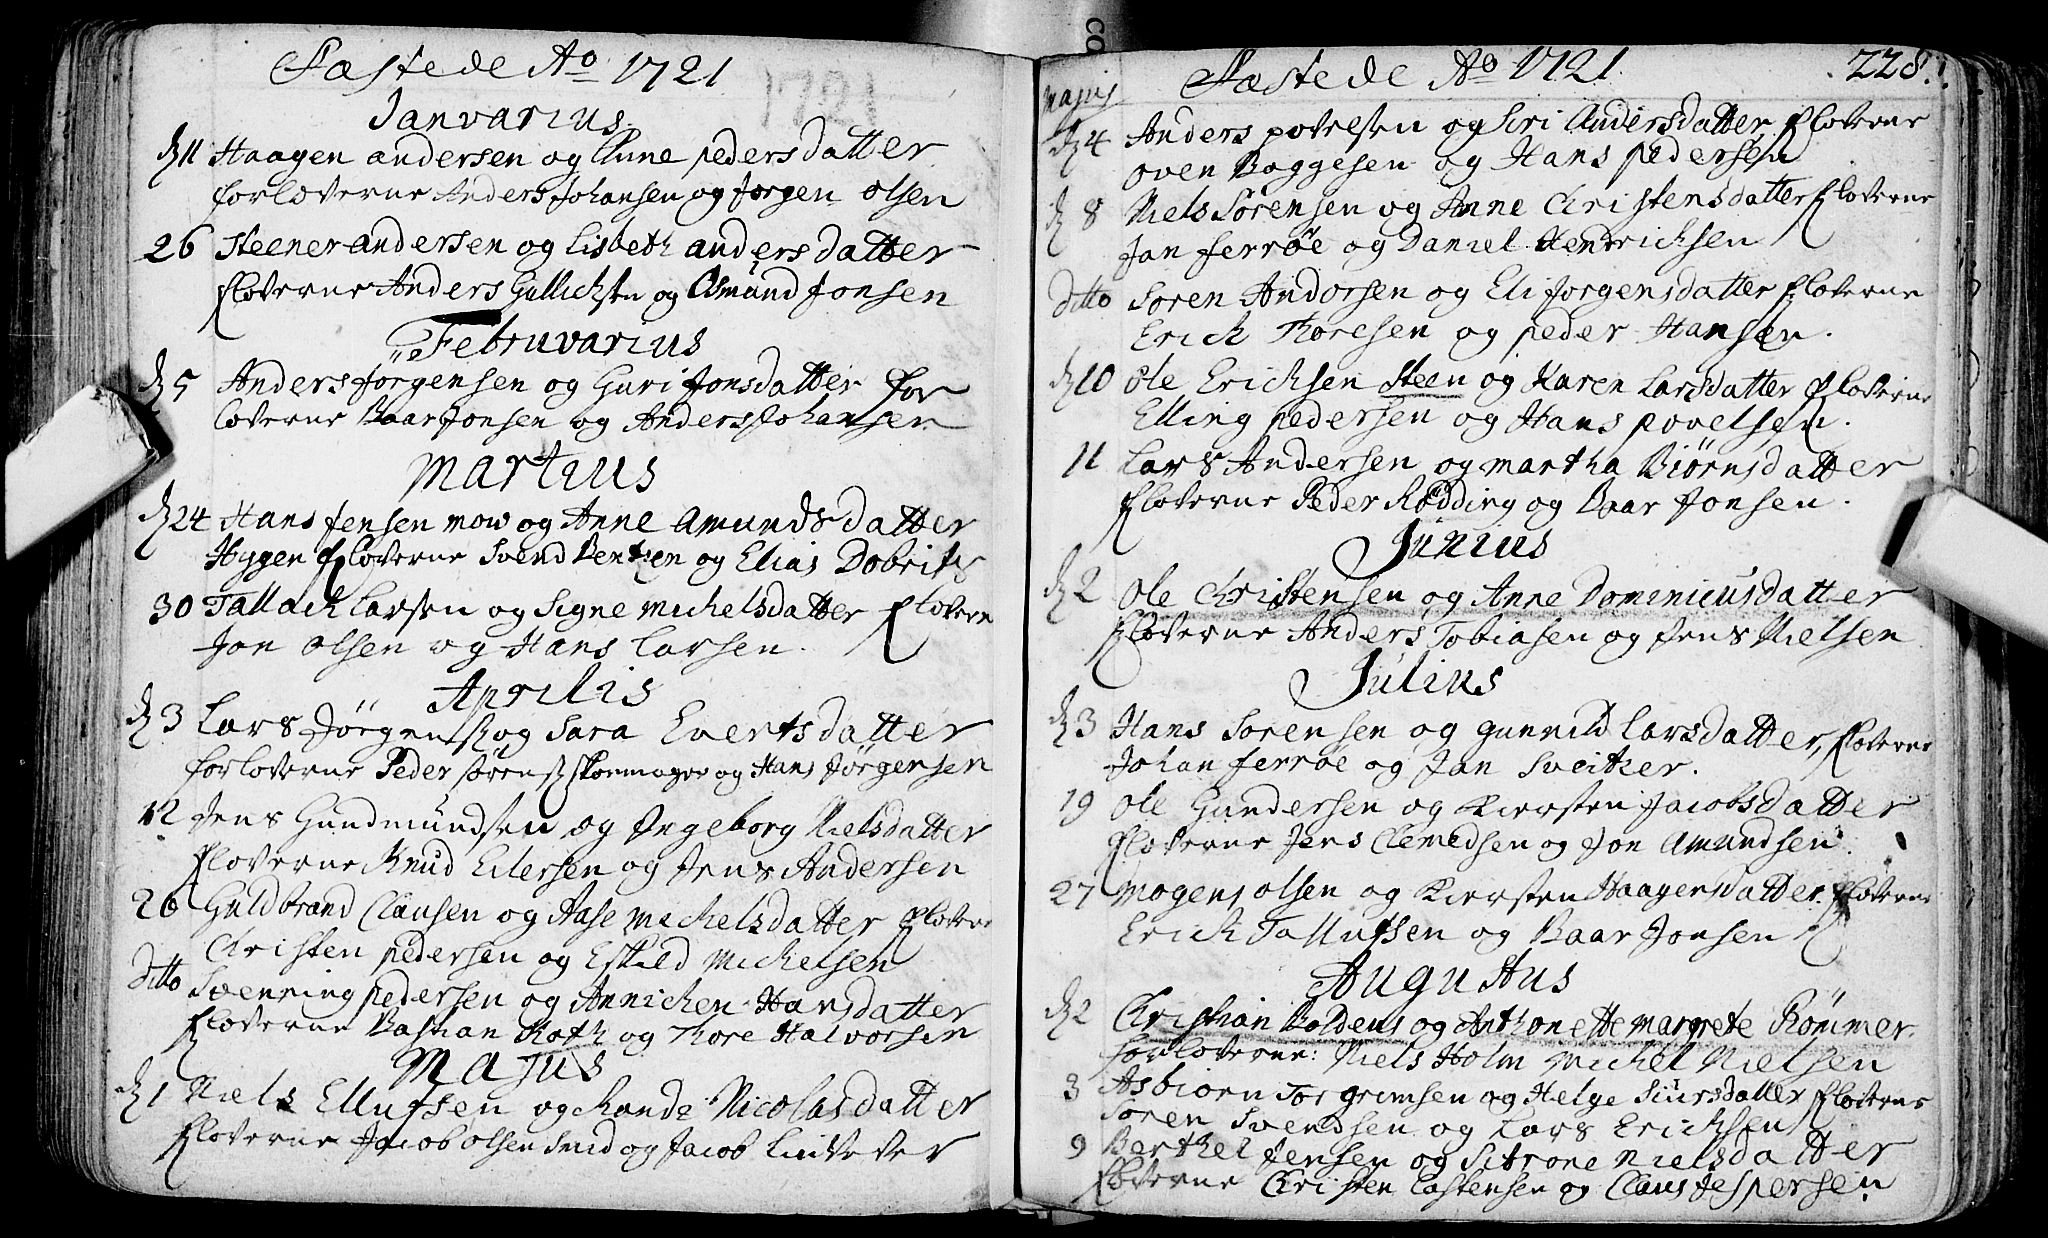 Fæstede Ao 1721
1721
Janvarius
d 11 Haagen andersen og Anne pedersdatter
forloverne Anders Johansen og Jørgen olsen
26 Steener andersen og Lisbeth andersdatter
floverne Anders Gullichsen og Osmund Jonsen
Februvarius
d 5 Anders Jørgensen og Guri Jonsdatter for
loverne Baar Jonsen og Anders Johansen
Martius
d 24 Hans Jensen mow og Anne Amundsdatter
Hygen floverne Svend Bentzen og Elias Dobrits
30 Tallack Larsen og Signe Michelsdatter flovern
Jon olsen og Hans Larsen.
Aprilis
d 3 Lars Jørgens og Sara Evertsdatter
forloverne Peder sørens skoemager og Hans Jørgensen
12 Jens Gundmundsen og Ingeborg Nielsdatter
floverne Knud Eilersen og Jens Andersen
26 Guldbrand Clausen og Aase Michelsdatter flovere
Christen pedersen og Eskild Michelsen
ditto Svenning pedersen og Annichen Hansdatter
floverne Bastian Roth og Thore Halvorsen
Majus
d 1 Niels Ellufsen og Rande Nicolasdatter
floverne Jacob olsen Smid og Jacob Lindvever
Fæstede Ao 1721. 228.
Majus
d 4 Anders povelsen og Siri Andersdatter floverne
oven Baggesen og Hans pedersen
d 8 Niels Sørensen og Anne Christensdatter floverne
Jan ferrøe og Daniel Hendrichsen
ditto Søren Andorsen og Eli Jørgensdatter floverne
Erich Thoresen og peder Hansen.
d 10 Ole Erichsen Steen og Karen Larsdatter floverne
Elling pedersen og Hans povelsen.
11 Lars Andersen og martha Biørnsdatter
floverne Peder Rødding og Baar Jonsen.
Junius
d 2 Ole Christensen og Anne Dominicusdatter
floverne Anders Tobiasen og Jens Nielsen
Julius
d 3 Hans Sørensen og gunnild Larsdatter, floverne
Johan ferrøe og Jan Sveitzer.
19 Ole Gundersen og Kiersten Jacobsdatter
floverne Jens Clemedsen og Jon Amundsen.
27 Mogens olsen og Kiersten Haagensdatter. floverne
Erich Tallufsen og Baar Jonsen
Augustus
d 2 Christian Boldens og Anthonette margrete Rømmer.
forloverne: Niels Holm Michel Nielsen
3 Asbiørn Torgrimsen og Helge Siursdatter floverne
Søren Svendsen og Lars Erichsen
9 Berthel Jensen og Sitrone Nielsdatter
floverne Christen Castensen og Claus Jespersen